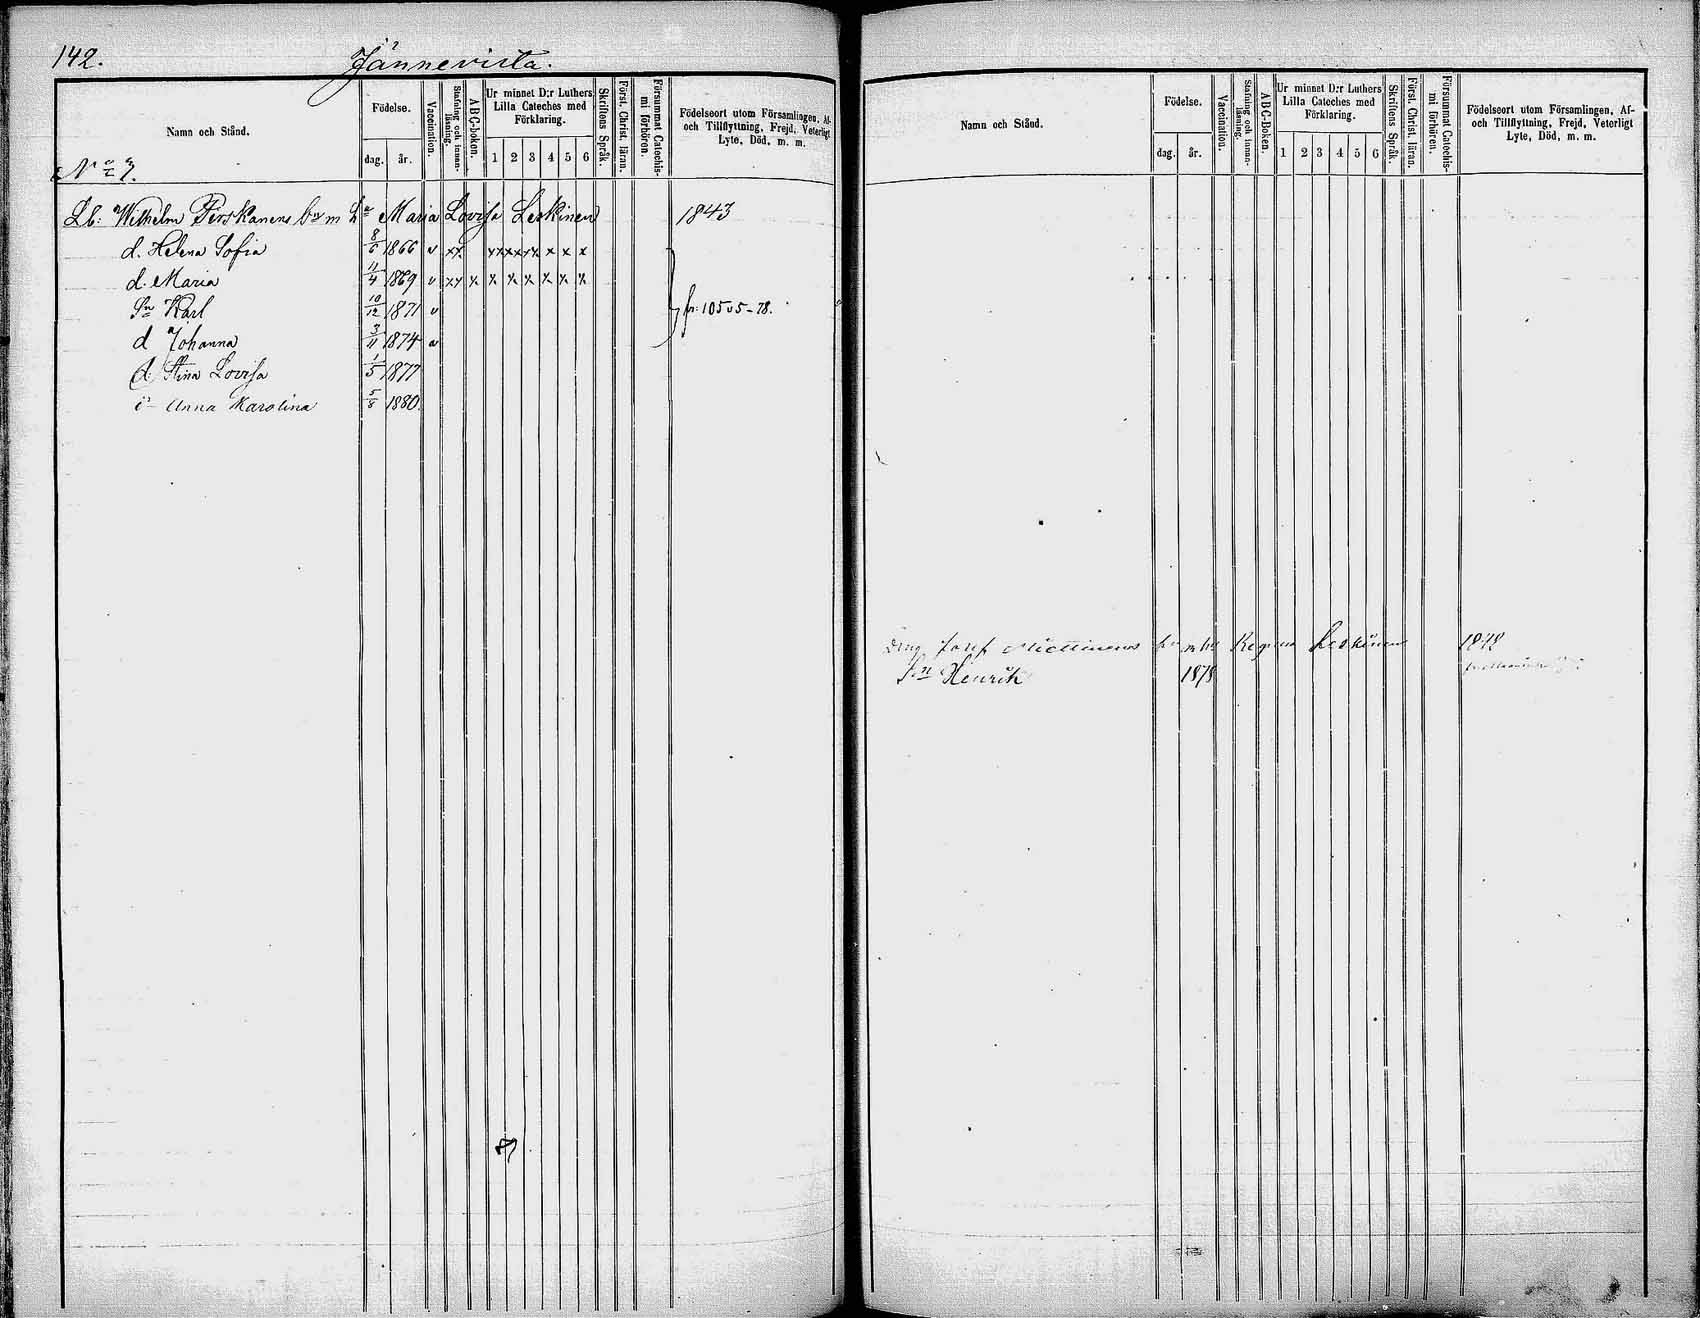 142. Jännevirta.
Namn och Stånd.
Födelse.
dag. år.
Vaccination.
Stafning och innanläsning.
ABC-boken.
Ur minnet D:r Luthers Lilla Cateches med Förklaring.
1 2 3 4 5 6
Skriftens Språk.
Först. Christ. läran.
Försummat Catechismi förhören.
Födelseort utom Församlingen, Af- och Tillflyttning, Frejd, Veterligt Lyte, Död, m. m.
No 3.
Lb: Wilhelm Pirskanens b:n m h:u Maria Lovisa Leskinen 1843
d. Helena Sofia 8/6 1866 v xx xxxxxx x x x
d. Maria 11/4 1869 v xx x x x x x x x
Sn Karl 10/12 1871 v fr: 105 v 5-78.
d Johanna 3/11 1874 v
d: Stina Lovisa 1/5 1877
d Anna Karolina 5/8 1880.
Namn och Stånd.
Födelse.
dag. år.
Vaccination.
Stafning och innanläsning.
ABC-Boken.
Ur minnet D:r Luthers Lilla Cateches med Förklaring.
1 2 3 4 5 6
Skriftens Språk.
Först. Christ. läran.
Försummat Catechismi förhören.
Födelseort utom Församlingen, Af- och Tillflyttning, Frejd, Veterligt Lyte, Död, m. m.
Drng Josef Miettinens bn m hu Regina Leskinen
Sn Henrik 1878